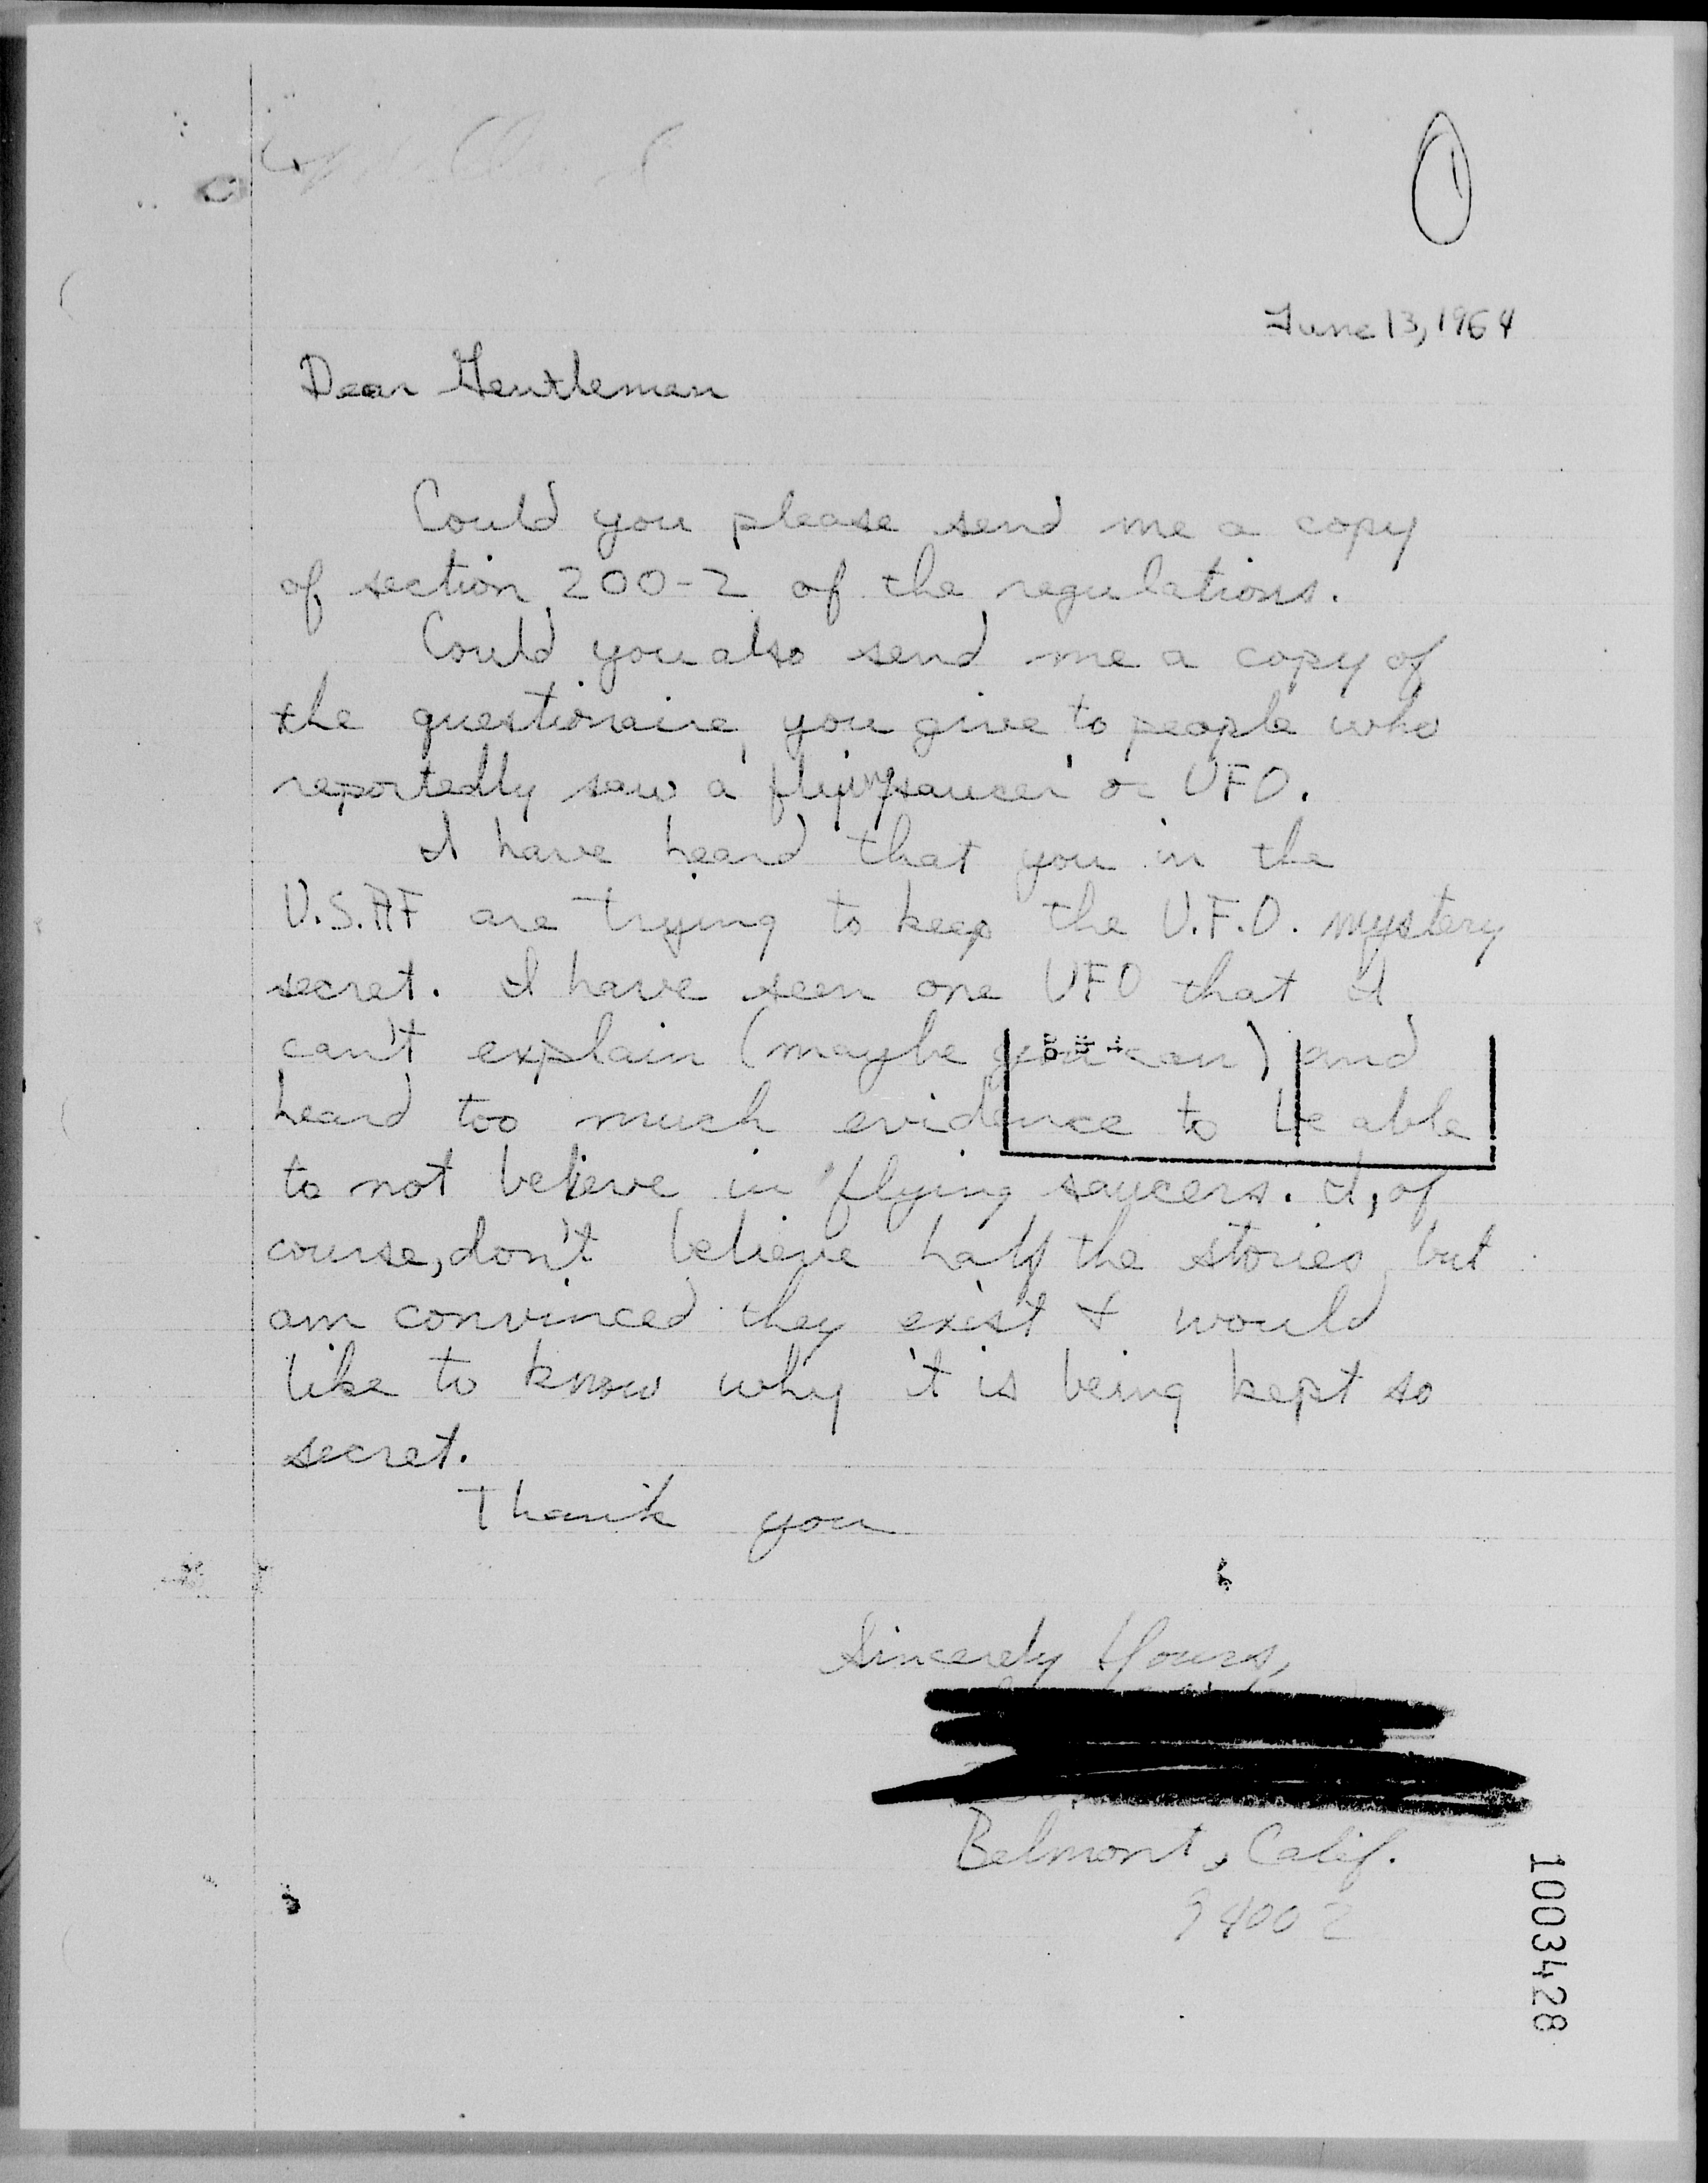 June 13, 1964
Dear Gentlemen
Could you please send me a copy
of section 200-2 of the regulations.
Could you also send me a copy of
the questionaire you give to people who
reportedly saw a 'flying saucer' or UFO.
I have heard that you in the
U.S.AF are trying to keep the U.F.O. mystery
secret. I have seen one UFO that I
can't explain (maybe you can) and
heard too much evidence to be able
to not believe in flying saucers. I, of
course, don't believe half the stories but
am convinced they exist & would
like to know why it is being kept so
secret.
Thank you
Sincerely Yours,
Belmont, Calif.
94002
1003428